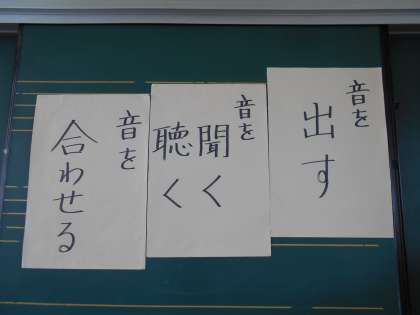 音を
出す
音を
聞く
聴く
音を
合わせる